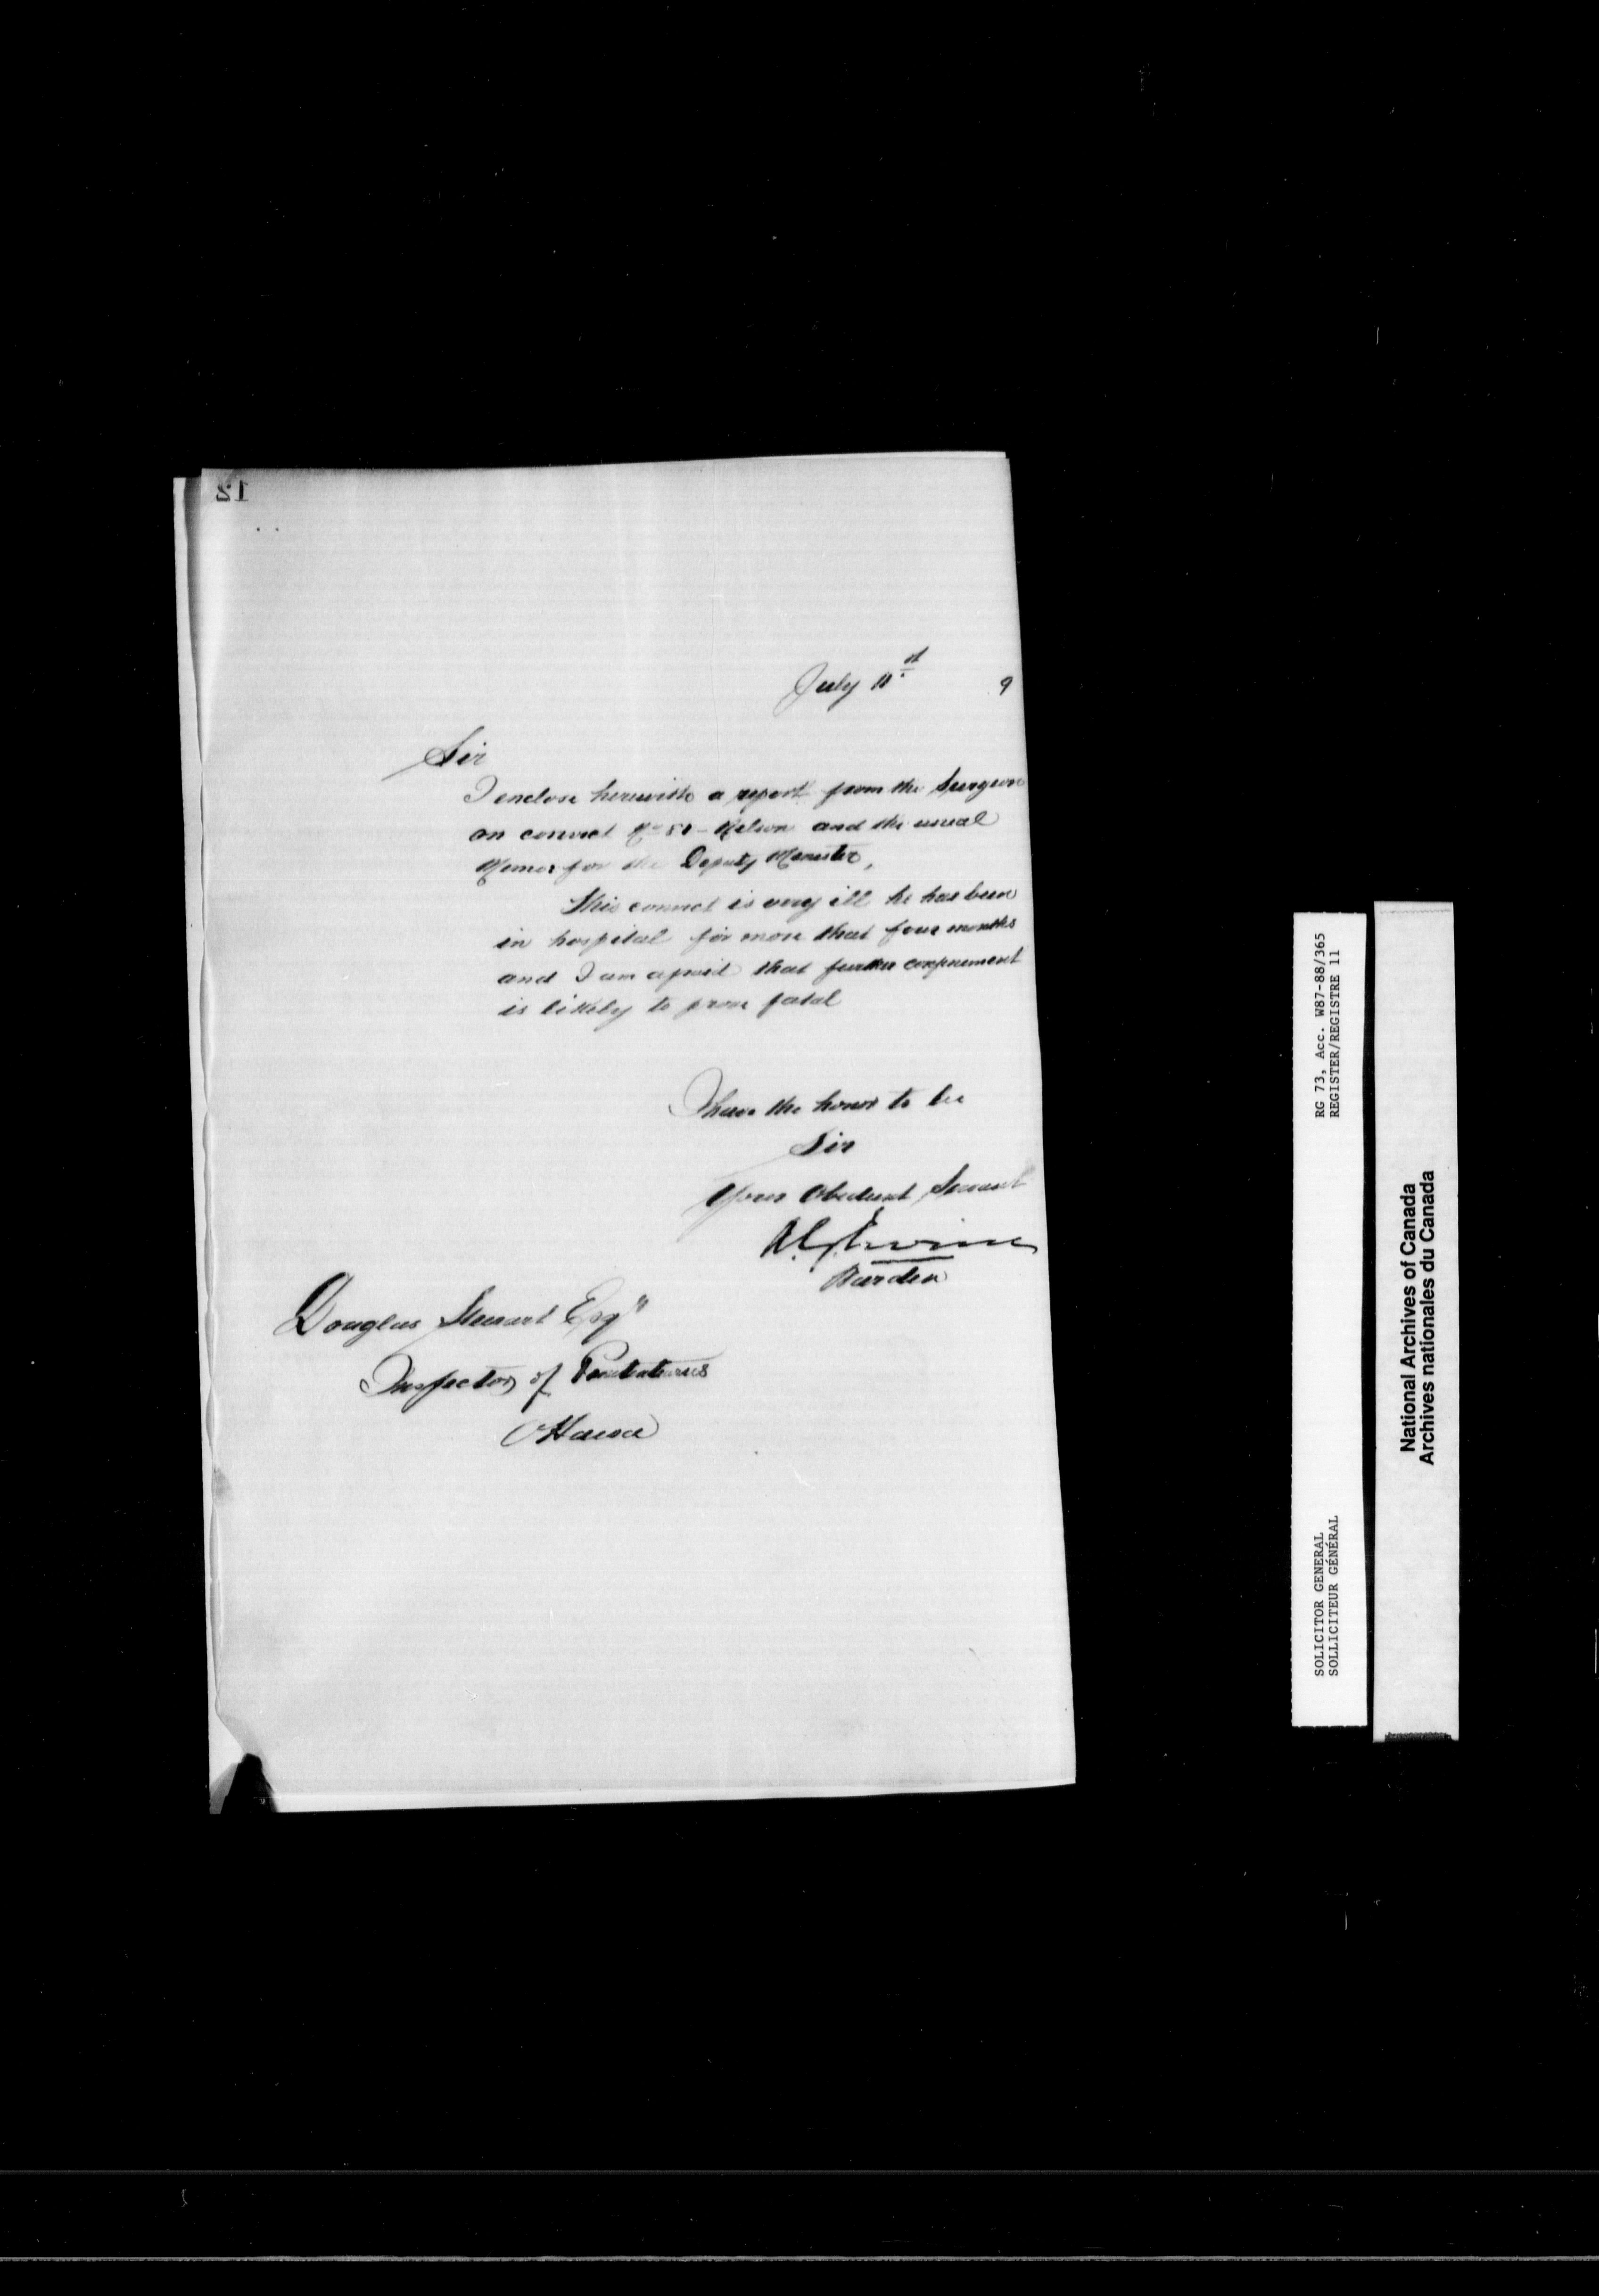 12
July 11st 9
Sir
I enclose herewith a report from the Surgeon
on convict No 81 - Nelson and the usual
Memo for the Deputy Minister,
This convict is very ill he has been
in hospital for more that four months
and I am afraid that further confinement
is likely to prove fatal
I have the honor to be
Sir
Your Obedient Servant
A.G. Irvine
Warden
Douglas Stewart Esqr
Inspector of Penitentiaries
Ottawa
RG 73, Acc. W87-88/365
REGISTER/REGISTRE 11
SOLICITOR GENERAL
SOLLICITEUR GÉNÉRAL
National Archives of Canada
Archives nationales du Canada